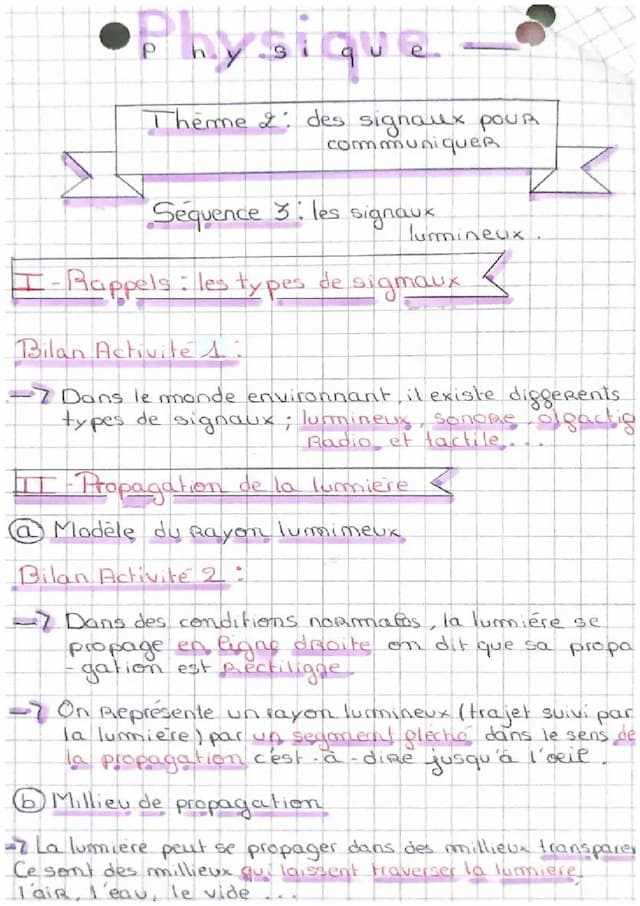 Physique
Thème 2 : des signaux pour
communiquer
Séquence 3 : les signaux
lumineux.
I - Rappels : les types de signaux
Bilan Activité 1 :
→ Dans le monde environnant, il existe différents
types de signaux ; lumineux, sonore, olfactif
Radio, et tactile...
II - Propagation de la lumière
ⓐ Modèle du rayon lumineux
Bilan Activité 2 :
→ Dans des conditions normales, la lumière se
propage en ligne droite on dit que sa propa
-gation est Rectiligne
→ On Représente un rayon lumineux (trajet suivi par
la lumière) par un segment fléché dans le sens de
la propagation c'est-à-dire jusqu'à l'oeil.
ⓑ Millieu de propagation
→ La lumière peut se propager dans des millieux transparen
Ce sont des millieux qui laissent traverser la lumière,
l'air, l'eau, le vide ...